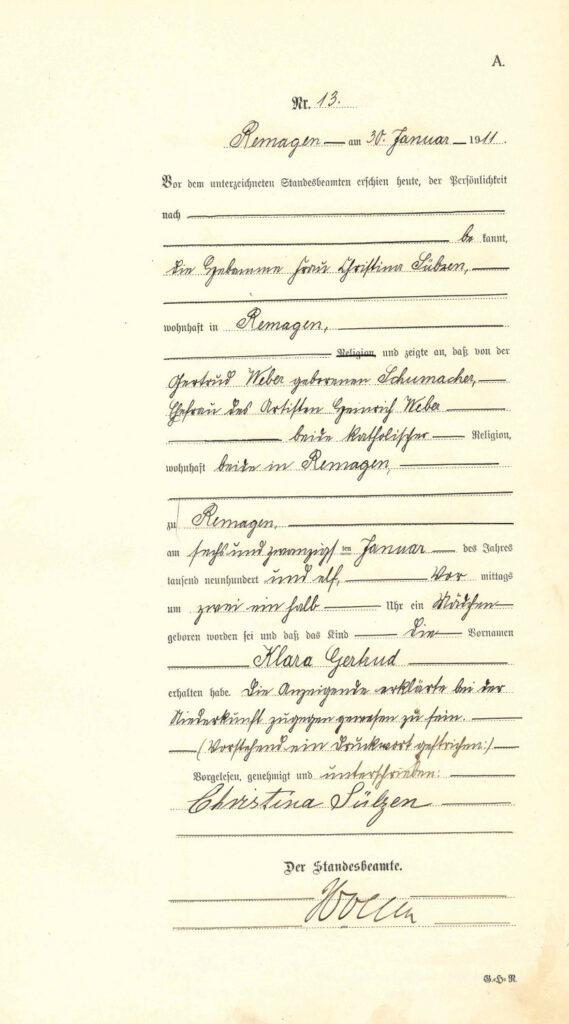 A.
Nr. 13.
Remagen am 30. Januar 1911.
Vor dem unterzeichneten Standesbeamten erschien heute, der Persönlichkeit
nach
be kannt,
die Hebamme Frau Christina Sülzen,
wohnhaft in Remagen,
Religion, und zeigte an, daß von der
Gertrud Weber geborenen Schumacher,
Ehefrau des Artisten Heinrich Weber
beide katholischer Religion,
wohnhaft beide in Remagen,
zu Remagen,
am sechsundzwanzigsten Januar des Jahres
tausend neunhundert und elf, Vor mittags
um zwei ein halb Uhr ein Mädchen
geboren worden sei und daß das Kind die Vornamen
Klara Gertrud
erhalten habe. Die Anzeigende erklärte bei der
Niederkunft zugegen gewesen zu sein.
(Vorstehend ein Druckwort gestrichen.)
Vorgelesen, genehmigt und unterschrieben:
Christina Sülzen
Der Standesbeamte.
G.H.R.